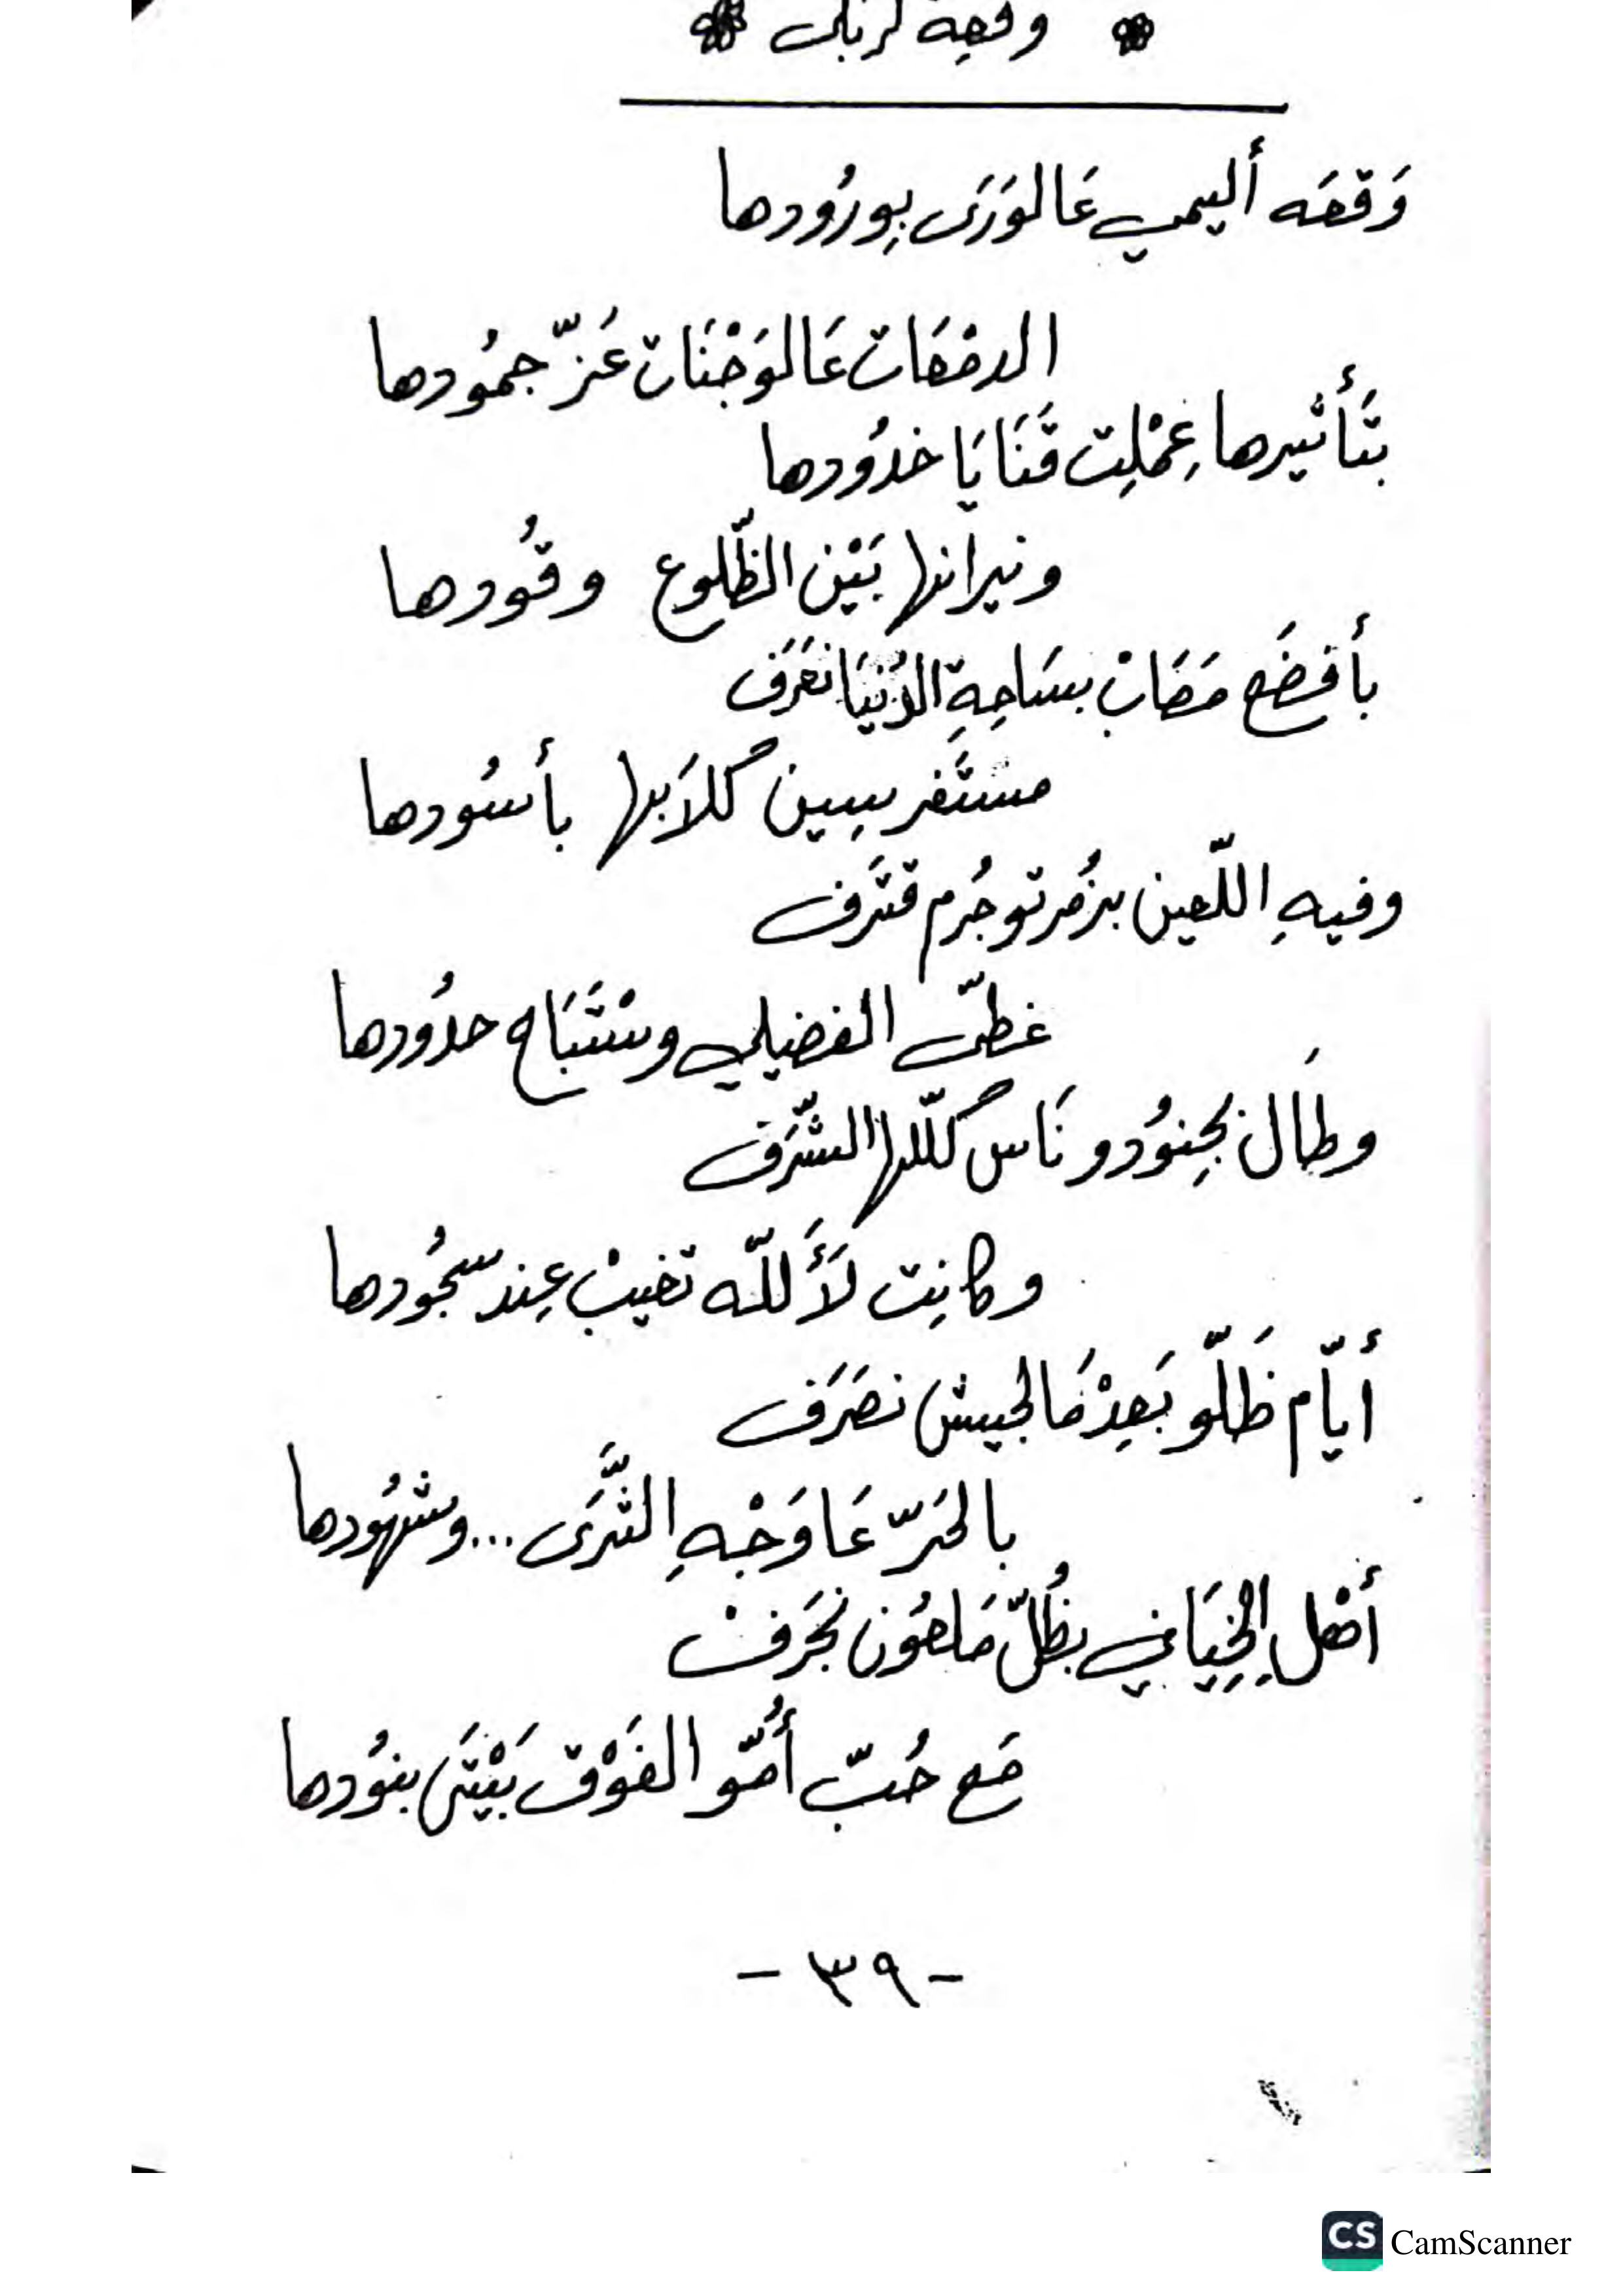 وقعة كربلا
وَقعَه أليمي عَالوَرَى بِورُودها
الدمْعَات عَالوَجْنَات عَزّ جمُودها
بتَأثيرها عِمْلِت قَنَايَا خدُودها
ونيرانها بَيْن الظّلوع وقُودها
بأفضَع مَصَابْ بسَاحِةِ الدُنيَا نعَرَف
مستَفرسِين كلاَبها بأسُودها
وفيهِ اللّعين بزُمرتو جُرم قتَرف
غطّى الفضيلي وستَبَاح حدُودها
وطَال بجِنوُدو نَاس كلّلها الشّرَف
وكانِت لَأَللّه تغيبْ عِند سجُودها
أيّام ظَلّو بَعِدْمَالجيش نصَرَف
بالحَرّ عَا وَجْهِ الثَّرَى ...وشهُودها
أهْل الِخِيَاني بظُلّ مَلعوُن نجَرَفْ
مَع حُبّ أُمّو الفَوْق بَيْتَى بنوُدها
- ٣٩ -
CS CamScanner